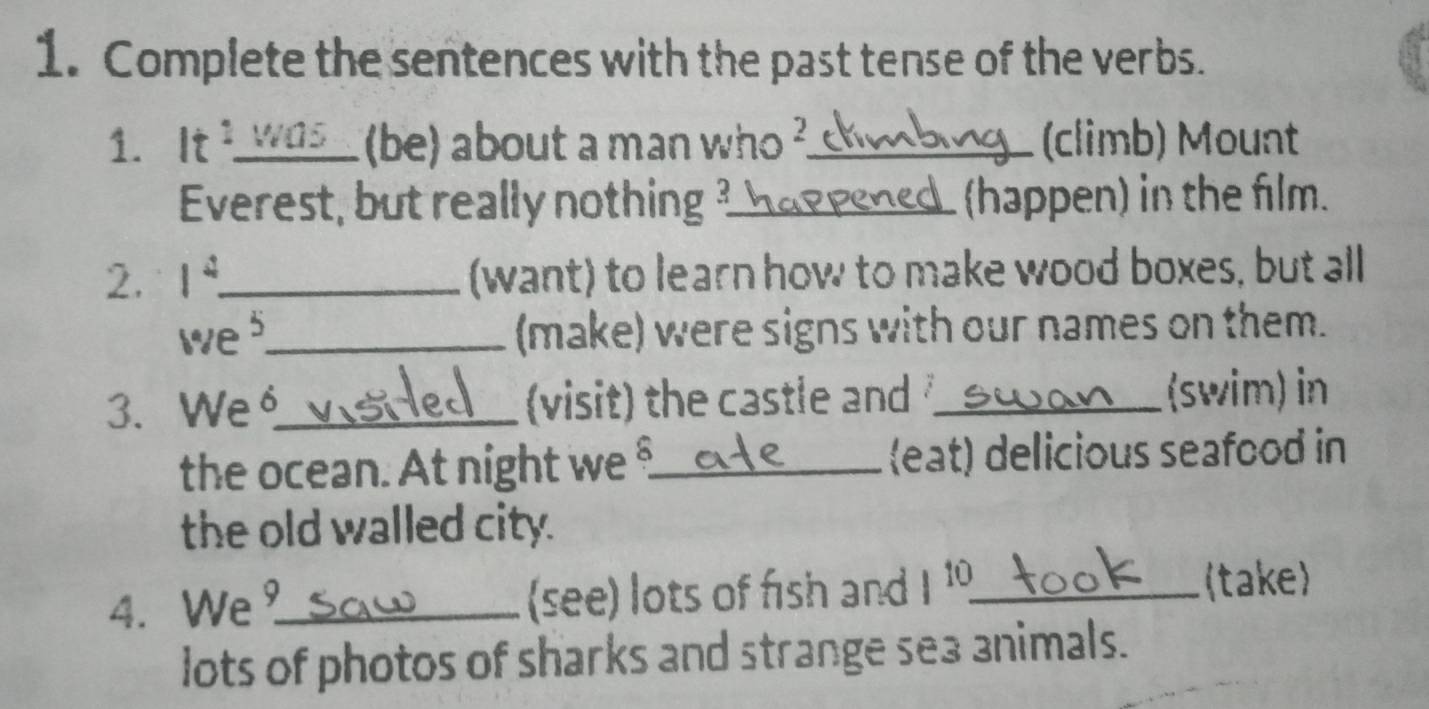 1. Complete the sentences with the past tense of the verbs.
1. It ¹ was (be) about a man who ² climbing (climb) Mount
Everest, but really nothing ³ happened (happen) in the film.
2. I ⁴__________ (want) to learn how to make wood boxes, but all
we ⁵__________ (make) were signs with our names on them.
3. We ⁶ visited (visit) the castle and ⁷ swan (swim) in
the ocean. At night we ⁸ ate (eat) delicious seafood in
the old walled city.
4. We ⁹ saw (see) lots of fish and I ¹⁰ took (take)
lots of photos of sharks and strange sea animals.